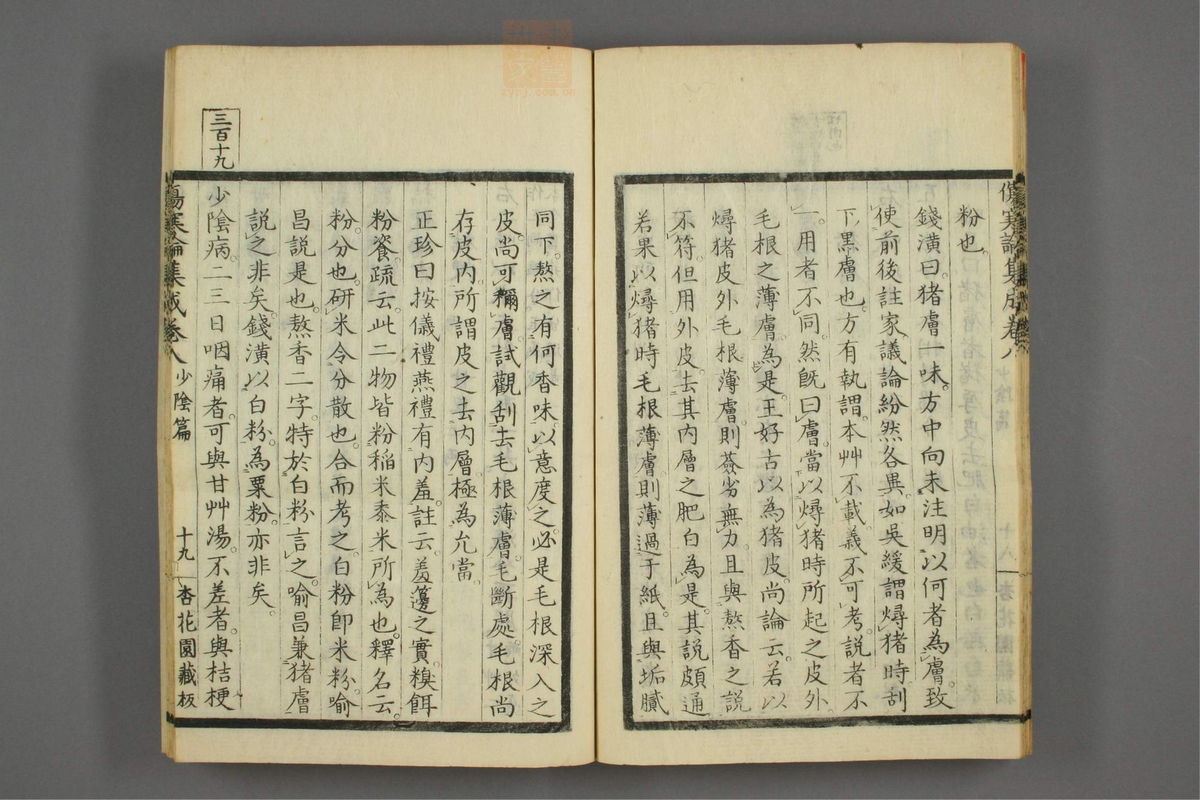 粉也。
錢潢曰。猪膚一味。方中向未注明以何者為膚。致
使前後註家議論紛然各異。如吳緩謂燖猪時刮
下黑膚也。方有執謂。本艸不載。義不可考。說者不
一。用者不同。然既曰膚。當以燖猪時所起之皮外
毛根之薄膚為是。王好古以為猪皮。尚論云。若以
燖猪皮外毛根薄膚。則簽劣無力。且與熬香之說
不符。但用外皮。去其內層之肥白為是。其說頗通。
若果以燖猪時毛根薄膚。則薄過于紙。且與垢膩
同下。熬之有何香味。以意度之。必是毛根深入之
皮。尚可稱膚。試觀刮去毛根薄膚。毛斷處毛根尚
存皮內。所謂皮之去內層。極為允當。
正珍曰。按儀禮燕禮有內羞。註云。羞籩之實。糗餌
粉餈。疏云。此二物皆粉稻米黍米所為也。釋名云。
粉。分也。研米令分散也。合而考之。白粉即米粉。喻
昌說是也。熬香二字。特於白粉言之。喻昌兼猪膚
說之非矣。錢潢以白粉為粟粉。亦非矣。
三百十九
少陰病。二三日咽痛者。可與甘艸湯。不差者。與桔梗
傷寒論集成卷八 少陰篇 十九 杏花園藏板